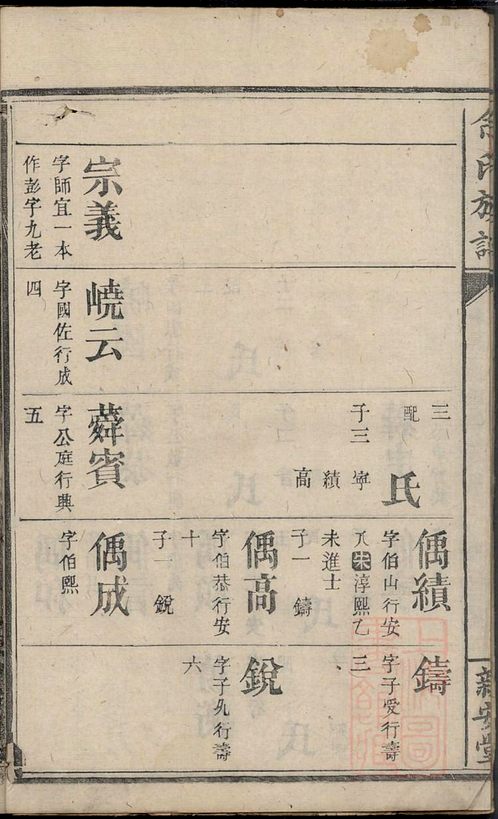 氏族譜
新安堂
宗義
字師宜一本
作彭字九老
嶢云
字國佐行成
四
三
配 氏
子三 寧
績
高
蕣賓
字公庭行興
五
偊績
字伯山行安
八宋淳熙乙
未進士
子一 鑄
偊高
字伯恭行安
十
子 銳
偊成
字伯熙
鑄
字子爱行壽
三
銳
字子 行壽
六